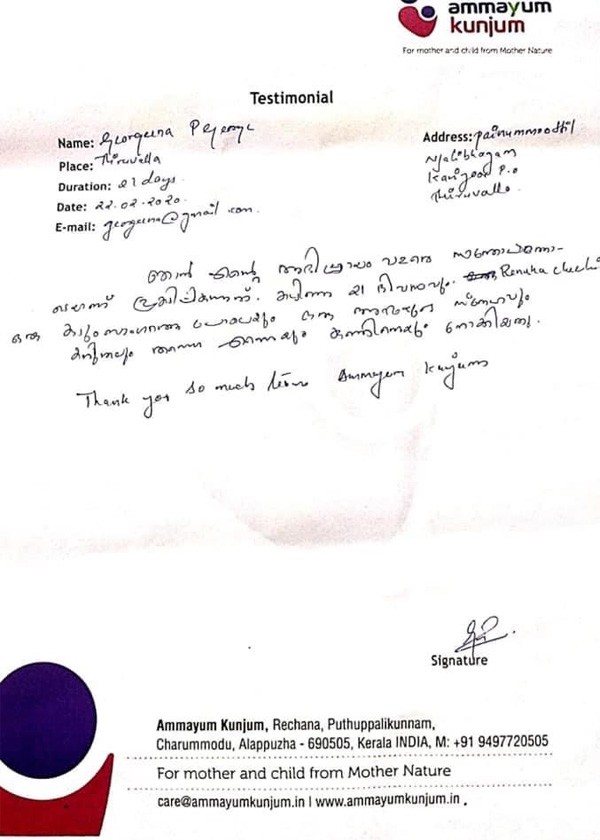 ammayum
kunjum
For mother and child from Mother Nature
Testimonial
Name: Georgeena
Place: Thiruvalla
Duration: 21 days.
Date: 22.02.2020.
E-mail: georgeena@gmail com.
Address: painummoodtil
Njalibhagam
P.o
Thiruvalla.
ഞാൻ എന്റെ അഭിപ്രായം വളരെ സന്തോഷത്തോ-
കഴിഞ്ഞ 21 ദിവസവും. Renuka chechi
ഒരു കുടുംബാംഗത്തെ പോലെയും ഒരു അമ്മയുടെ സ്നേഹവും
തന്ന് എന്നെയും കുഞ്ഞിനെയും നോക്കിയത്.
Thank you so much Ammayum Kunjum
Signature
Ammayum Kunjum, Rechana, Puthuppalikunnam,
Charummodu, Alappuzha - 690505, Kerala INDIA, M: +91 9497720505
For mother and child from Mother Nature
care@ammayumkunjum.in | www.ammayumkunjum.in .